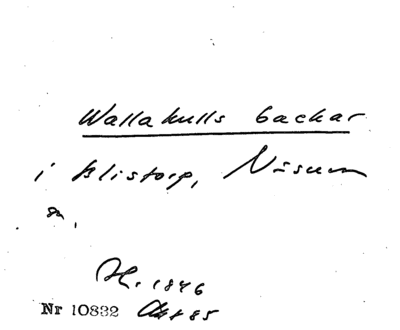 Wallakulls backar
i Blistorp, Näsum
sn.
H. 1846
Nr 10832 Akt 85